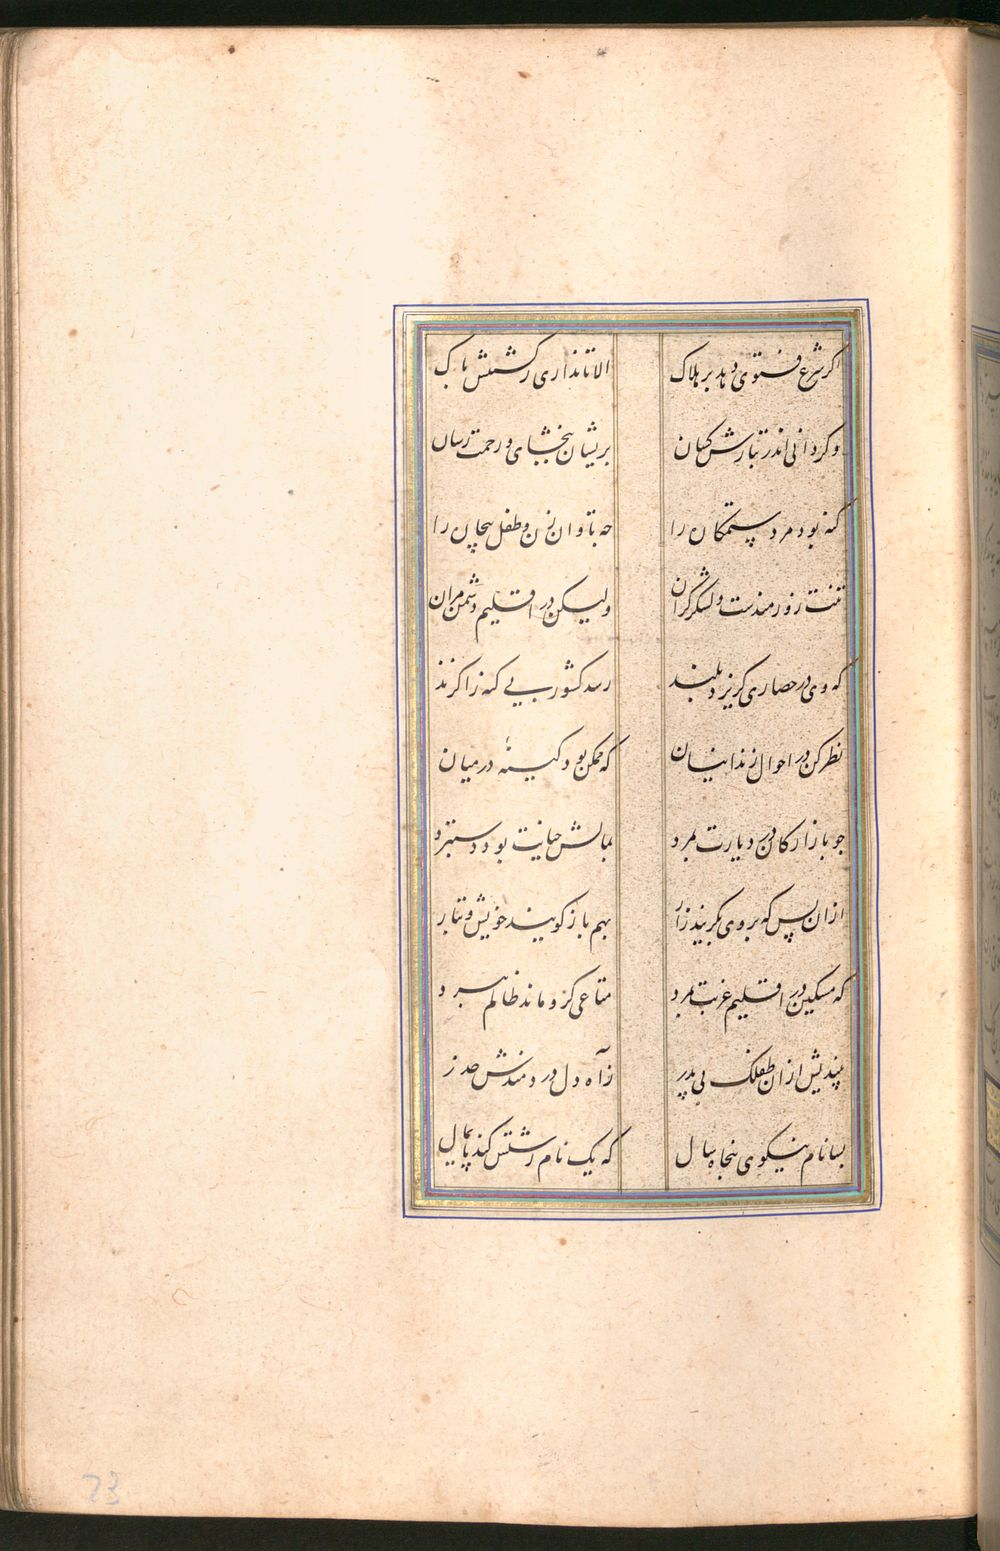 اکر شرع فتوی دهد بر هلاک الا تا نداری ز کشتنش باک
وکر دانی اندر تبارش کسان بریشان ببخشای و رحمت رسان
کنه بود مرد ستمکاره را چه تاوان زن و طفل بیچاره را
تنت زورمندست و لشکر کران ولیکن در اقلیم دشمن مران
که وی در حصاری کریزد بلند رسد کشور بی کنه را کزند
نظر کن در احوال زندانیان که ممکن بود بی کنه در میان
جو بازارکان در دیارت بمرد بمالش خیانت بود دست برد
ازان بس که بر وی بکریند زار بهم باز کویند خویش و تبار
که مسکین در اقلیم غربت بمرد متاعی کزو ماند ظالم ببرد
بیندیش ازان طفلک بی بدر ز آه دل دردمندش حذر
بسا نام نیکوی بنجاه سال که یک نام زشتش کند بایمال
73